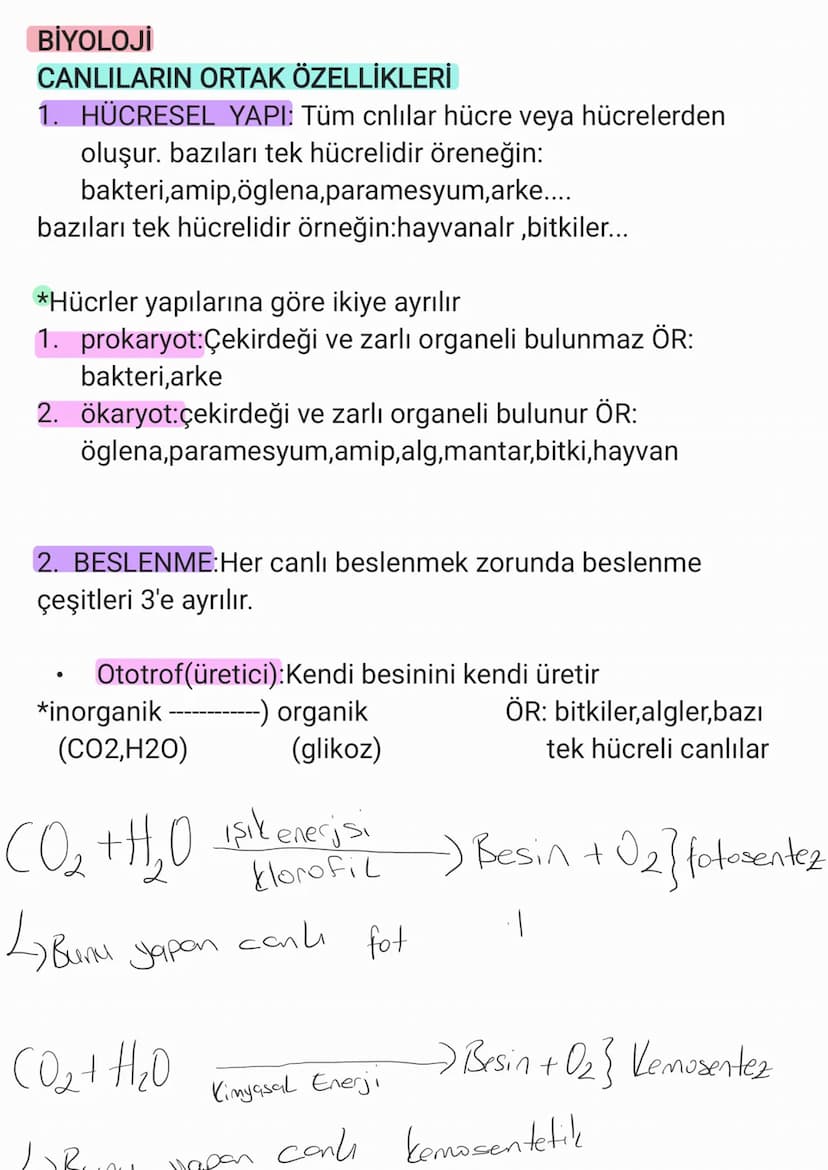 BİYOLOJİ
CANLILARIN ORTAK ÖZELLİKLERİ
1. HÜCRESEL YAPI: Tüm cnlılar hücre veya hücrelerden
oluşur. bazıları tek hücrelidir öreneğin:
bakteri,amip,öglena,paramesyum,arke....
bazıları tek hücrelidir örneğin:hayvanalr ,bitkiler...
*Hücrler yapılarına göre ikiye ayrılır
1. prokaryot:Çekirdeği ve zarlı organeli bulunmaz ÖR:
bakteri,arke
2. ökaryot:çekirdeği ve zarlı organeli bulunur ÖR:
öglena,paramesyum,amip,alg,mantar,bitki,hayvan
2. BESLENME:Her canlı beslenmek zorunda beslenme
çeşitleri 3'e ayrılır.
• Ototrof(üretici):Kendi besinini kendi üretir
*inorganik ------------) organik ÖR: bitkiler,algler,bazı
(CO2,H2O) (glikoz) tek hücreli canlılar
CO₂ +H₂O ışık enerjsi klorofil → Besin + O₂} fotosentez
↳ Bunu yapan canlı fot
CO₂+ H₂O Kimyasal Enerji → Besin + O₂} Kemosentez
↳ Bunu yapan canlı kemosentetik